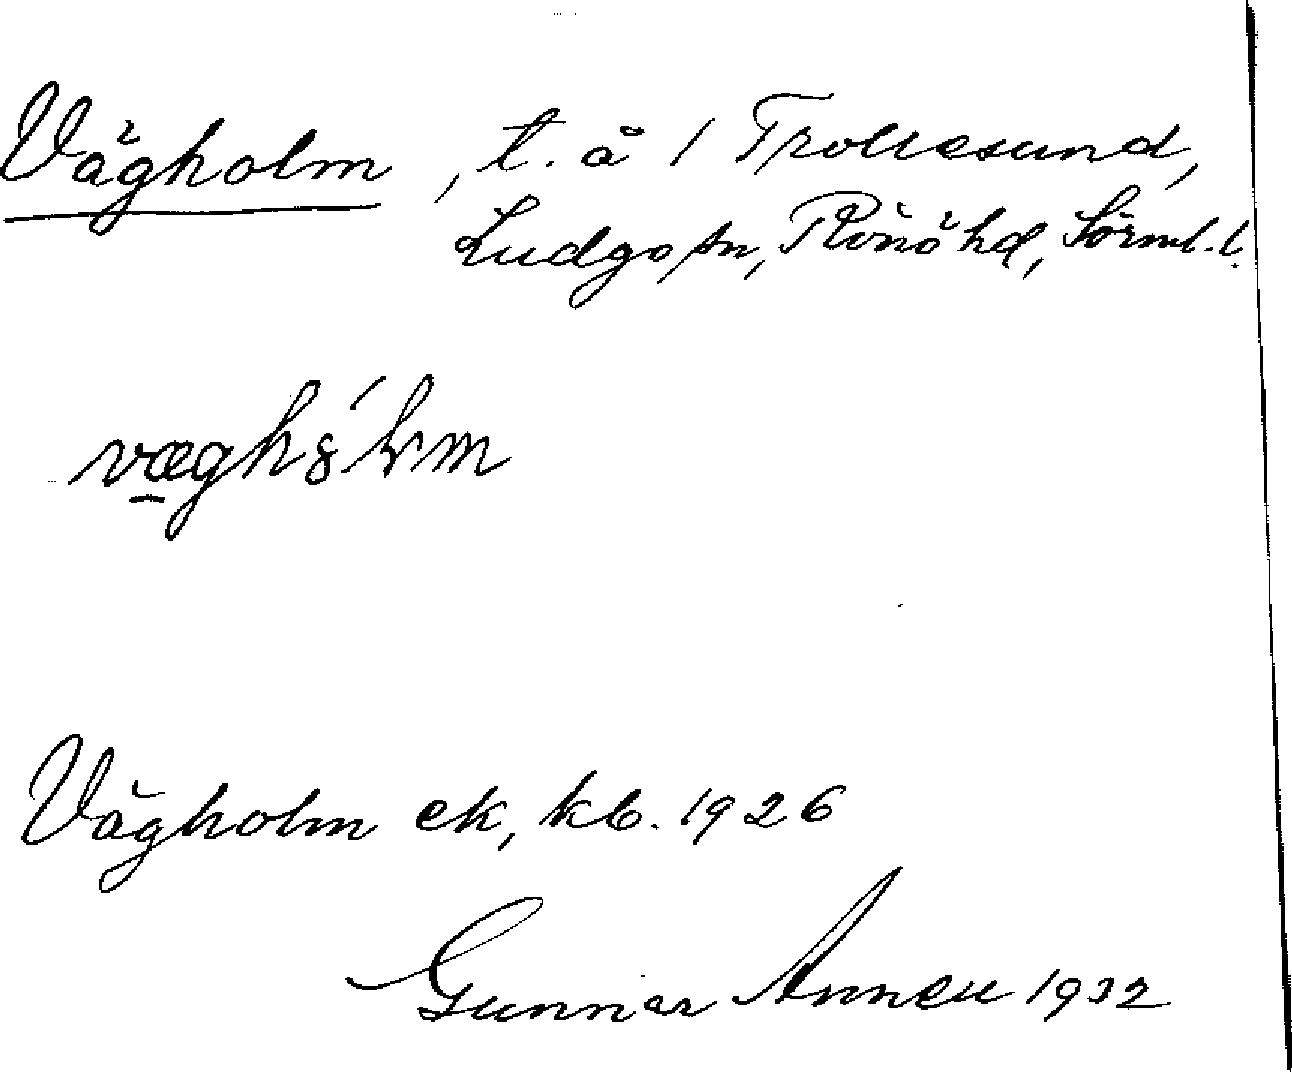 Vägholm, t. å 1 Trollesund,
Ludgo sn, Rönö hd, Sörml. l.
Vägholm ek, kb. 1926
Gunnar Annell 1932